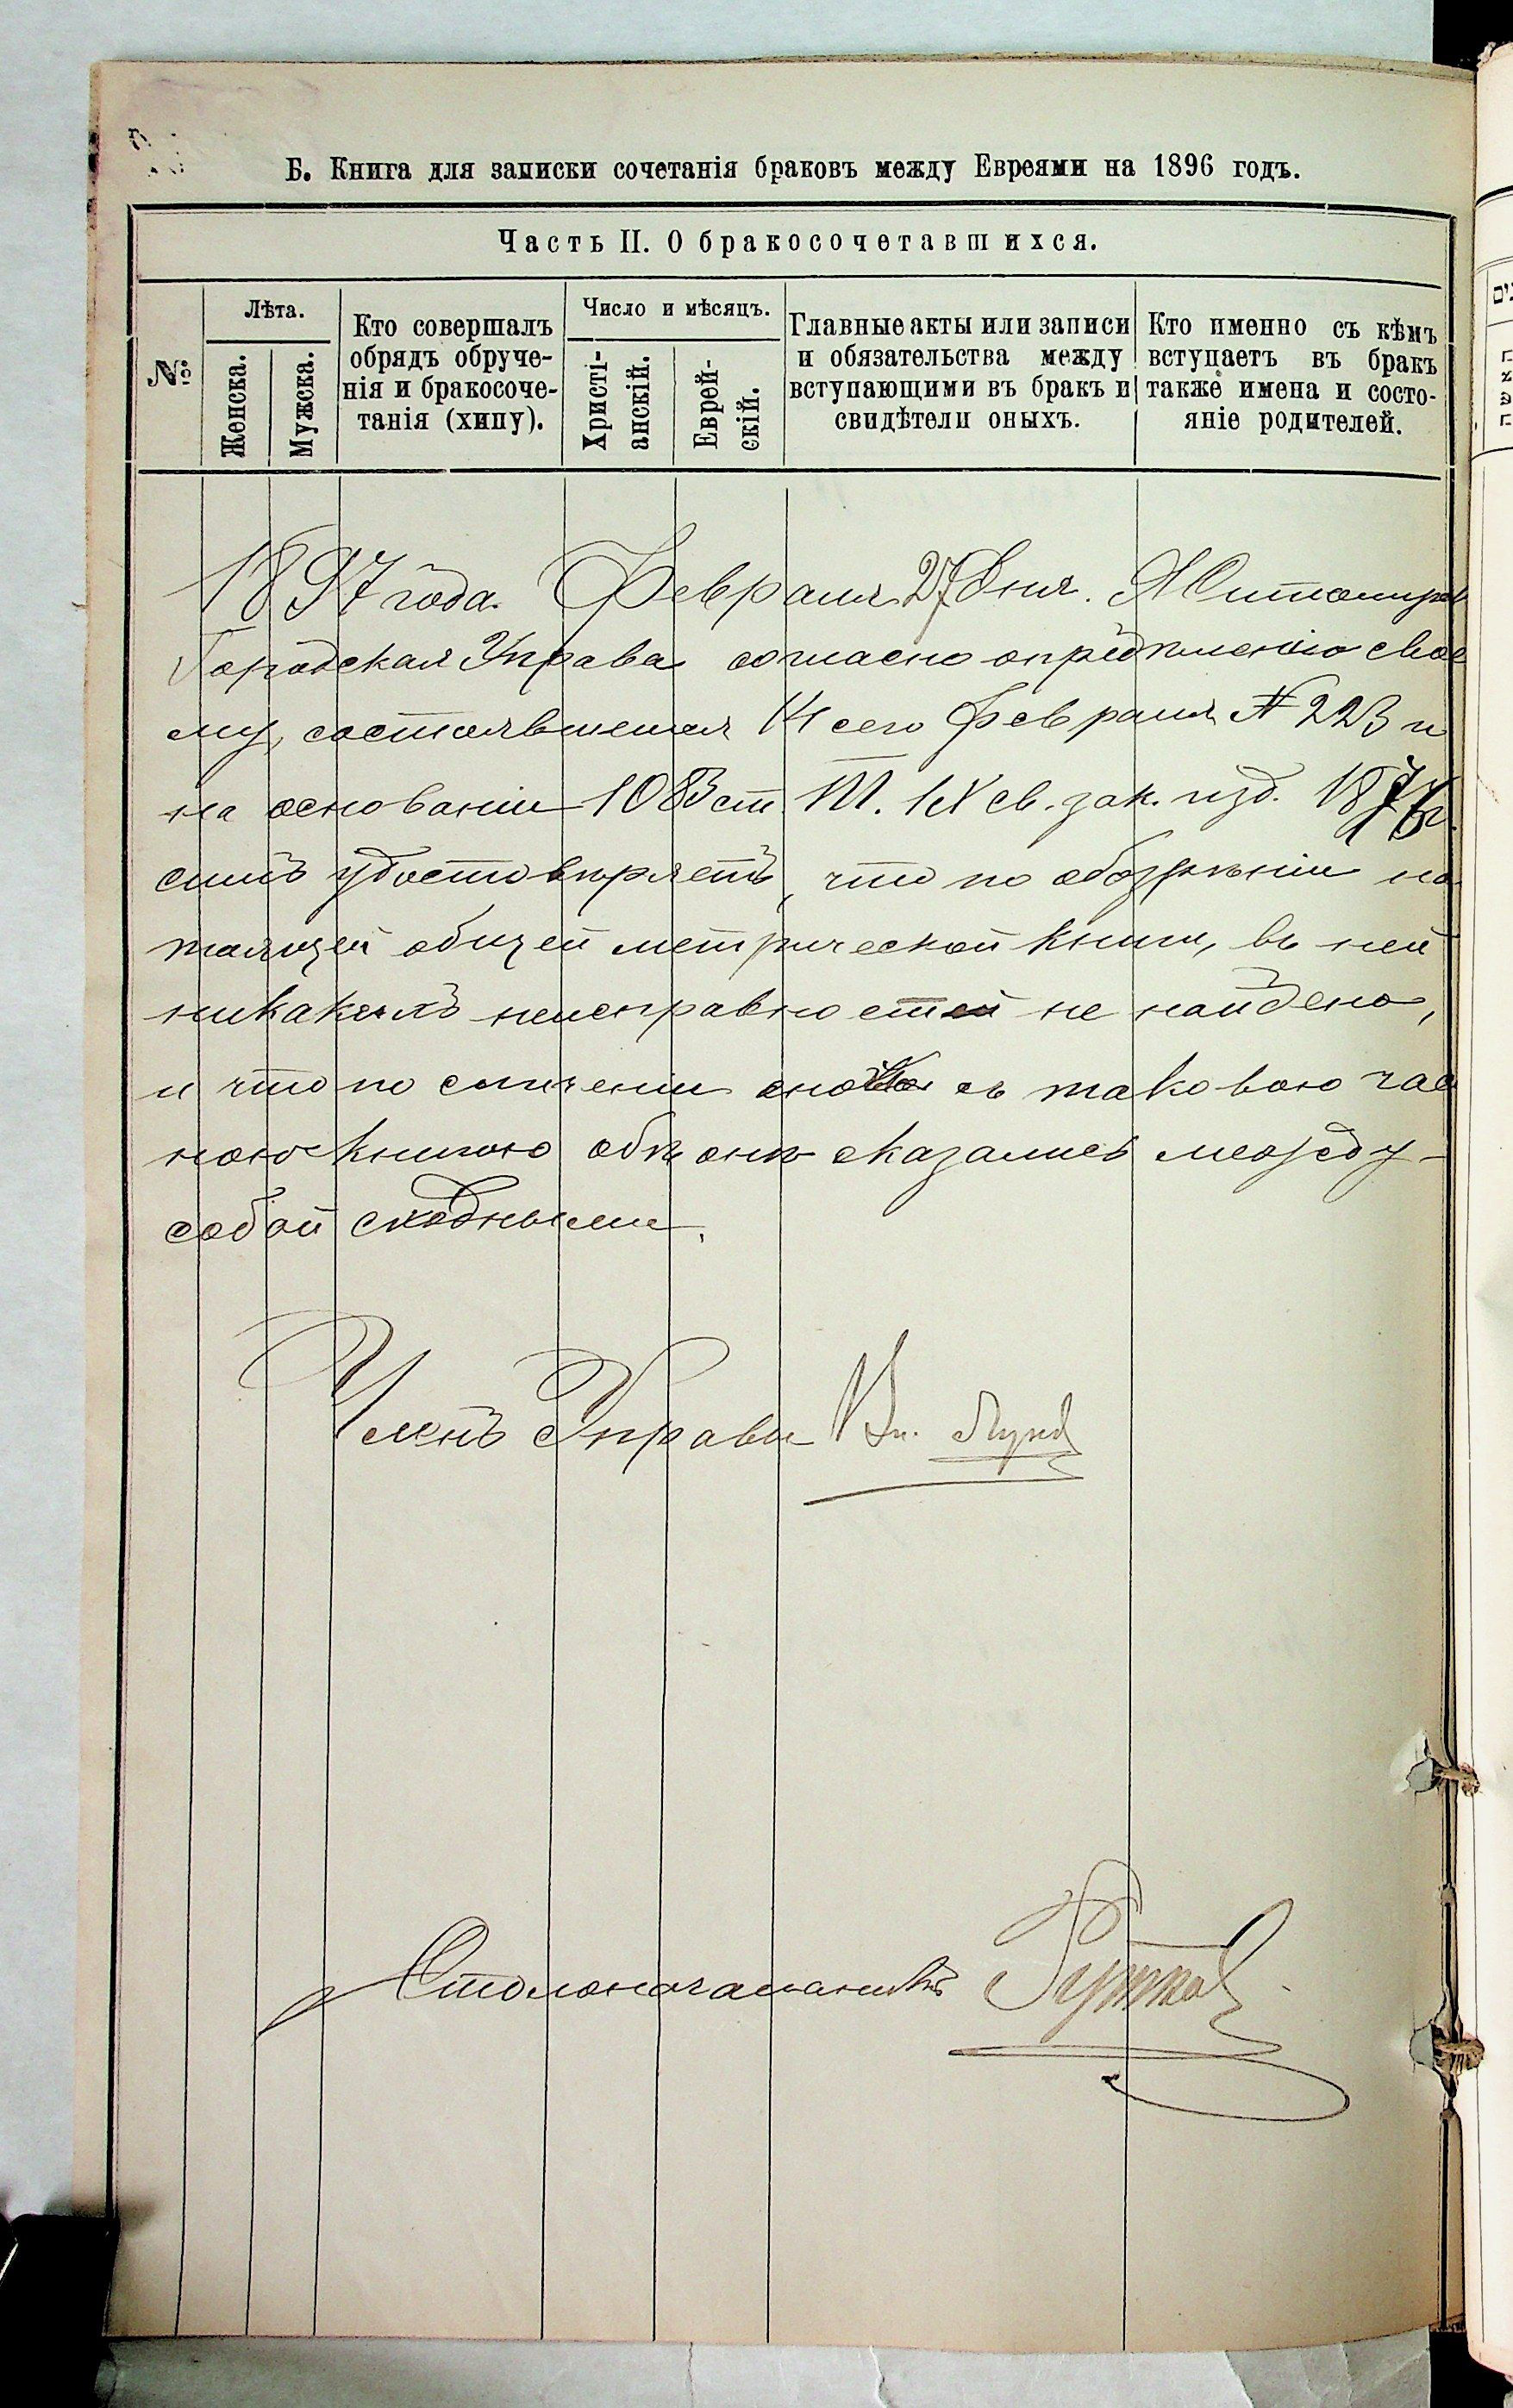 Б. Книга для записки сочетанія браковъ между Евреями на 1896 годъ.
Часть II. О бракосочетавшихся.
№
Лѣта.
Женска.
Мужска.
Кто совершалъ
обрядъ обруче-
нія и бракосоче-
танія (хипу).
Число и мѣсяцъ.
Христі-
анскій.
Еврей-
скій.
Главные акты или записи
и обязательства между
вступающими въ бракъ и
свидѣтели оныхъ.
Кто именно съ кѣмъ
вступаетъ въ бракъ
также имена и состо-
яніе родителей.
1897 года. Февраля 27 дня. Житомирс
Городская Управа согласно опредѣленію свое
му, состоявшемуся 14 сего Февраля № 223 и
на основаніи 1083 ст. Т. IX св. зак. изд. 1876 г.
симъ удостовѣряетъ, что по обозрѣніи на
тоящей общей метрической книги, въ ней
никакихъ неисправностей не найдено,
и что по сличеніи оной съ таковою час
ною книгою обѣ онѣ оказались между
собой сходными.
Членъ Управы Вл.
Столоначальникъ